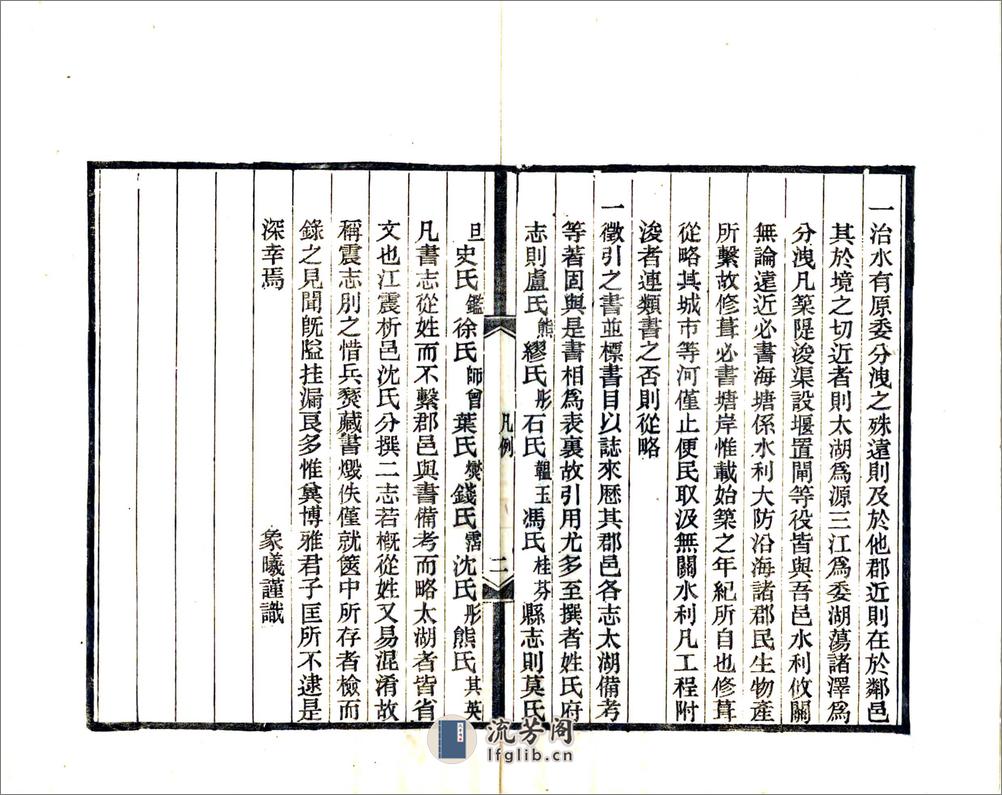 一治水有原委分洩之殊遠則及於他郡近則在於鄰邑
其於境之切近者則太湖爲源三江爲委湖蕩諸澤爲
分洩凡築隄浚渠設堰置閘等役皆與吾邑水利攸關
無論遠近必書海塘係水利大防沿海諸郡民生物產
所繫故修葺必書塘岸惟載始築之年紀所自也修葺
從略其城市等河僅止便民取汲無關水利凡工程附
浚者連類書之否則從略
一徵引之書並標書目以誌來歷其郡邑各志太湖備考
等著固與是書相爲表裏故引用尤多至撰者姓氏府
志則盧氏熊繆氏彤石氏韞玉馮氏桂芬縣志則莫氏
凡例
二
旦史氏鑑徐氏師曾葉氏燮錢氏霑沈氏彤熊氏其英
凡書志從姓而不繫郡邑與書備考而略太湖者皆省
文也江震析邑沈氏分撰二志若槪從姓又易混淆故
稱震志別之惜兵燹藏書燬佚僅就篋中所存者檢而
錄之見聞旣隘挂漏良多惟冀博雅君子匡所不逮是
深幸焉
象曦謹識
流芳阁
lfglib.cn